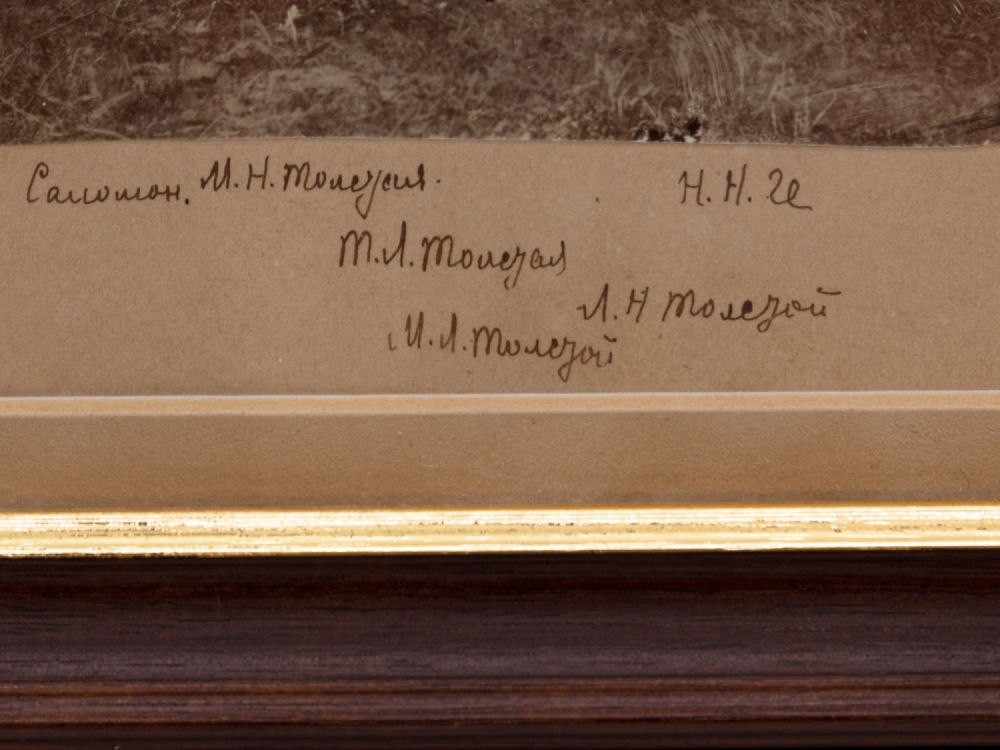 Саломон. М. Н. Толстая. Н. Н. Ге
Т. Л. Толстая
Л. Н Толстой
И. Л. Толстой